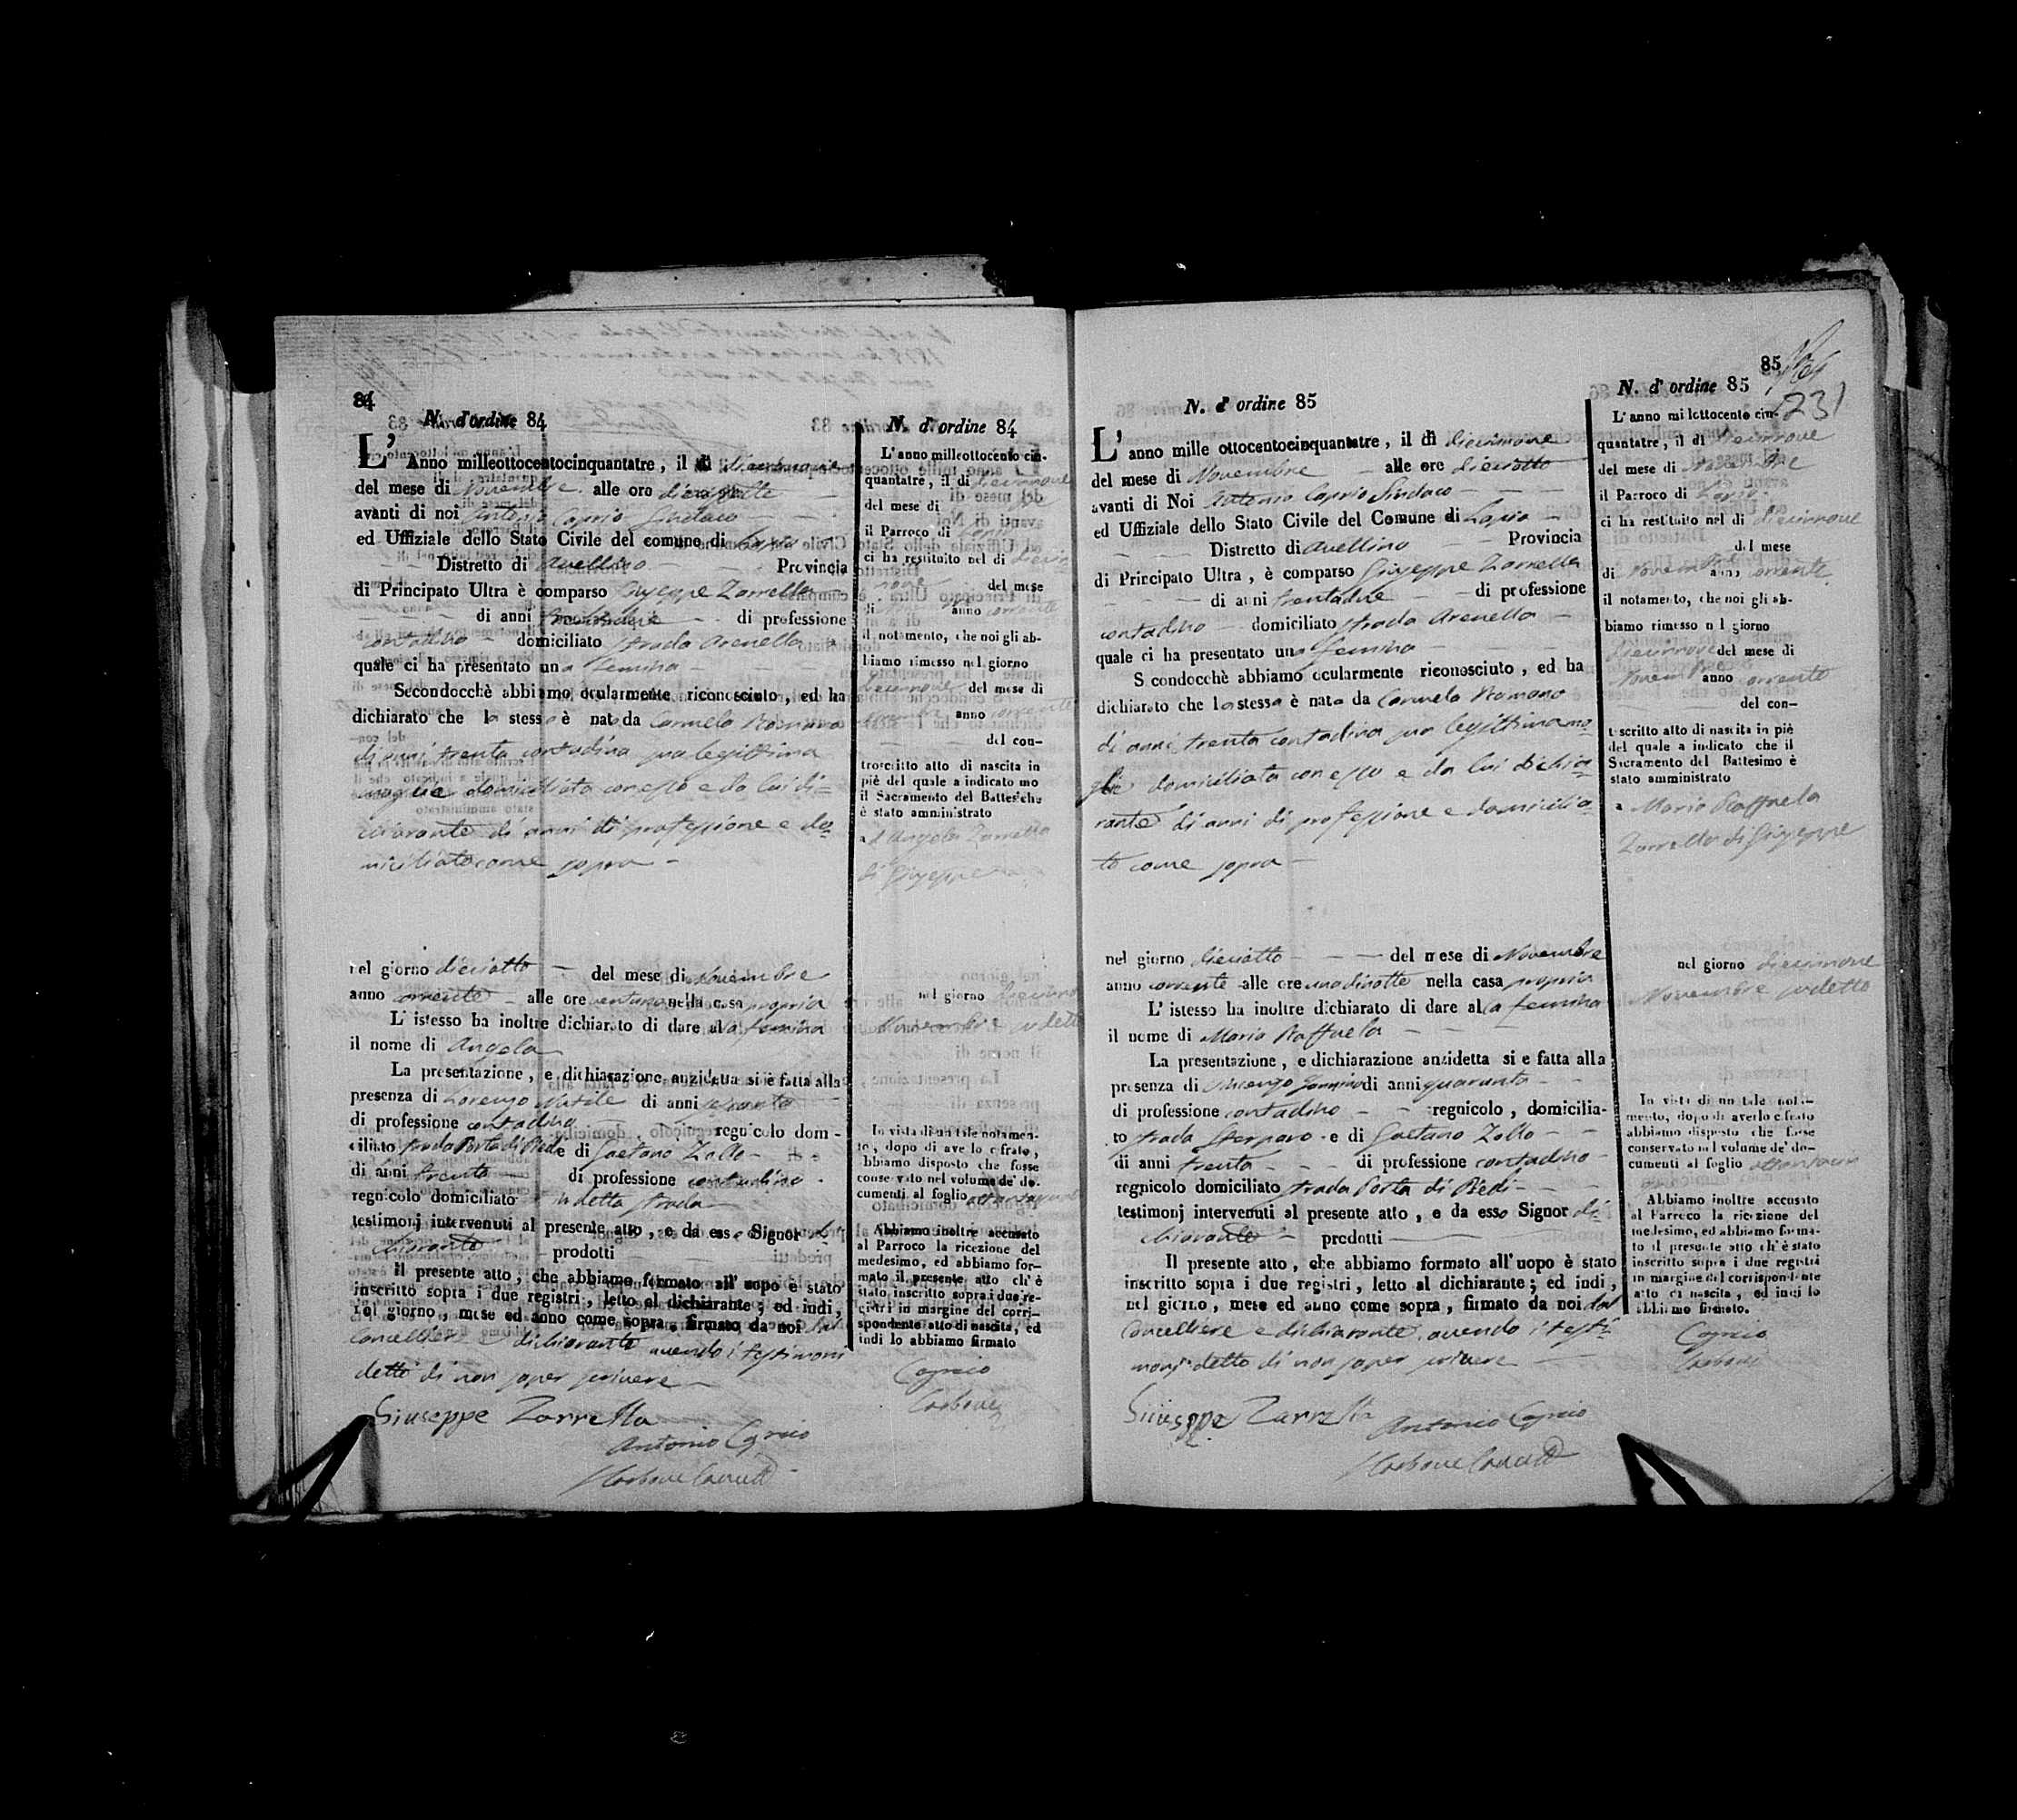 84
N. d'ordine 84
L' Anno milleottocentocinquantatre, il dì diecinnove
del mese di Novembre alle ore diecisette
avanti di noi Antonio Caprio Sindaco
ed Uffiziale dello Stato Civile del comune di Lapio
Distretto di Avellino Provincia
di Principato Ultra è comparso Giuseppe Zarrella
di anni trentadue di professione
contadino domiciliato strada Arenella
quale ci ha presentato una femina
Secondocchè abbiamo ocularmente riconosciuto, ed ha
dichiarato che la stessa è nata da Carmela Romano
di anni trenta contadina sua legittima
moglie domiciliata con esso e da lui di=
chiarante di anni di professione e do=
miciliato come sopra
nel giorno dieciotto del mese di Novembre
anno corrente alle ore ventuno nella casa propria
L' istesso ha inoltre dichiarato di dare alla femina
il nome di Angela
La presentazione, e dichiarazione anzidetta si è fatta alla
presenza di Lorenzo Natile di anni
di professione contadino regnicolo domi-
ciliato strada Porta di Piedi e di Gaetano Zollo
di anni trenta di professione contadino
regnicolo domiciliato in detta strada
testimonj intervenuti al presente atto, e da esso Signor di
chiarante prodotti
Il presente atto, che abbiamo formato all' uopo è stato
inscritto sopra i due registri, letto al dichiarante; ed indi,
nel giorno, mese ed anno come sopra, firmato da noi dal
Cancelliere e dichiarante avendo i testimoni
detto di non saper scrivere
Giuseppe Zarrella
Antonio Caprio
Carbone Cancell
N. d'ordine 84
L'anno milleottocento cin-
quantatre, il di diecinnove
del mese di
il Parroco di Lapio
ci ha restituito nel di diecin
nove del mese
di anno corrente
il notamento, che noi gli ab-
biamo rimesso nel giorno
diecinnove del mese di
Novembre anno corrente
del con-
troscritto atto di nascita in
piè del quale a indicato mo
il Sacramento del Battes'che
è stato amministrato
a d Angela Zarrella
di Giuseppe
nel giorno diecinno
Novembre sudetto
In vista di un tale notamen-
to, dopo di averlo cifrato,
abbiamo disposto che fosse
conservato nel volume de' do-
cumenti al foglio
Abbiamo inoltre accusato
al Parroco la ricezione del
medesimo, ed abbiamo for-
mato il presente atto ch'è
stato inscritto sopra i due re-
gistri in margine del corri-
spondente atto di nascita, ed
indi lo abbiamo firmato
Caprio
Carbone
85
231
N. d'ordine 85
L' anno mille ottocentocinquantatre, il dì diecinnove
del mese di Novembre alle ore dieciotto
avanti di Noi Antonio Caprio Sindaco
ed Uffiziale dello Stato Civile del Comune di Lapio
Distretto di Avellino Provincia
di Principato Ultra, è comparso Giuseppe Zarrella
di anni trentadue di professione
contadino domiciliato strada Arenella
quale ci ha presentato una femina
S condocchè abbiamo ocularmente riconosciuto, ed ha
dichiarato che la stessa è nata da Carmela Romano
di anni trenta contadina sua legittima mo=
glie domiciliata con esso e da lui dichia=
rante di anni di professione e domicilia=
to come sopra
nel giorno dieciotto del mese di Novembre
anno corrente alle ore una di notte nella casa propria
L' istesso ha inoltre dichiarato di dare alla femina
il nome di Maria Raffaela
La presentazione, e dichiarazione anzidetta si e fatta alla
presenza di Vincenzo di anni quaranta
di professione contadino regnicolo, domicilia-
to strada e di Gaetano Zollo
di anni trenta di professione contadino
regnicolo domiciliato strada Porta di Piedi
testimonj intervenuti al presente atto, e da esso Signor di=
chiarante prodotti
Il presente atto, che abbiamo formato all'uopo è stato
inscritto sopra i due registri, letto al dichiarante; ed indi,
nel giorno, mese ed anno come sopra, firmato da noi dal
Cancelliere e dichiarante, avendo i testi=
monj detto di non saper scrivere
Giuseppe Zarrella
Antonio Caprio
Carbone Cancell
N. d'ordine 85
L'anno millottocento cin-
quantatre, il di diecinnove
del mese di Novembre
il Parroco di Lapio
ci ha restituito nel di diecinnove
del mese
di Novembre anno corrente
il notamento, che noi gli ab-
biamo rimesso nel giorno
diecinnove del mese di
Novembre anno corrente
del con-
troscritto atto di nascita in piè
del quale a indicato che il
Sacramento del Battesimo è
stato amministrato
a Maria Raffaela
Zarrella di Giuseppe
nel giorno diecinnove
Novembre sudetto
In vista di un tale nota-
mento, dopo di averlo cifrato
abbiamo disposto che fosse
conservato nel volume de' do-
cumenti al foglio
Abbiamo inoltre accusato
al Parroco la ricezione del
medesimo, ed abbiamo forma-
to il presente atto ch'è stato
inscritto sopra i due registri
in margine del corrispondente
atto di nascita, ed indi lo
abbiamo firmato.
Caprio
Carbone